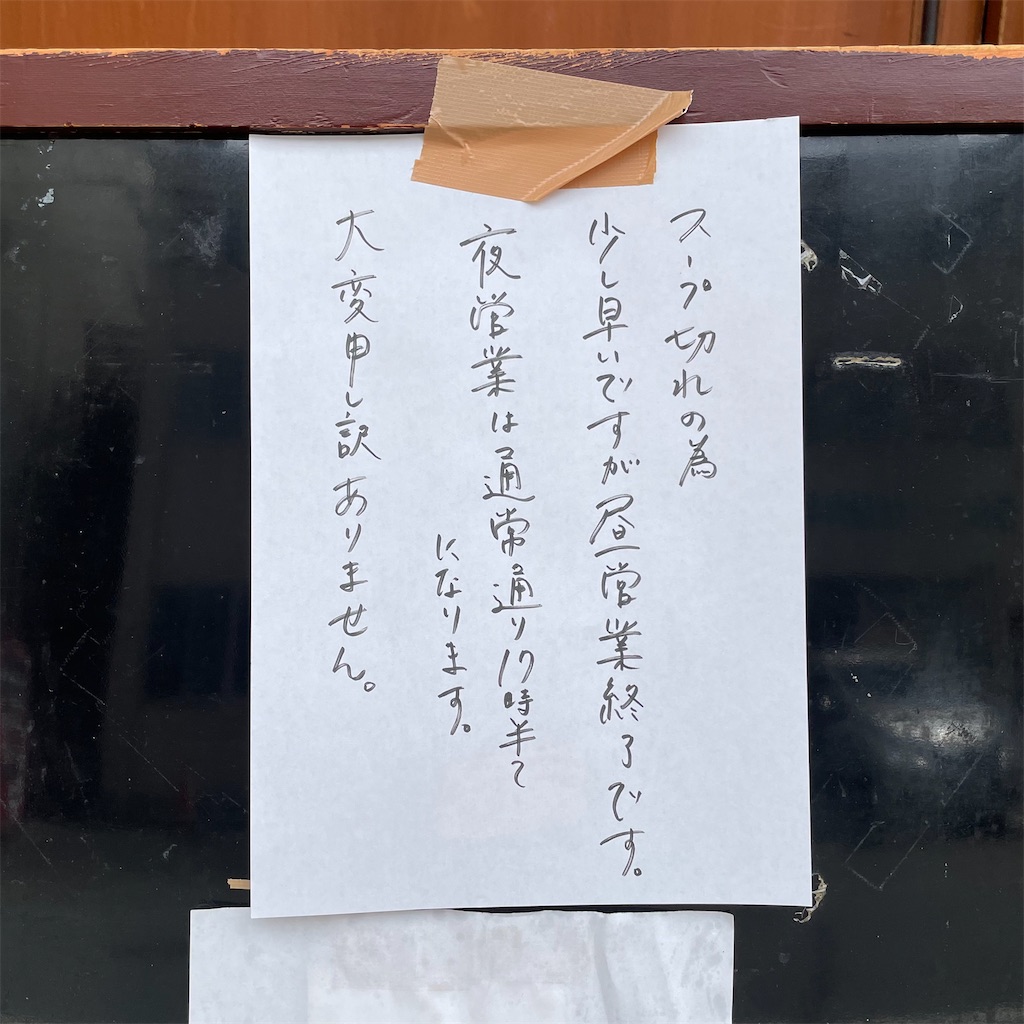 スープ切れの為
少し早いですが昼営業終了です。
夜営業は通常通り17時半て
になります。
大変申し訳ありません。